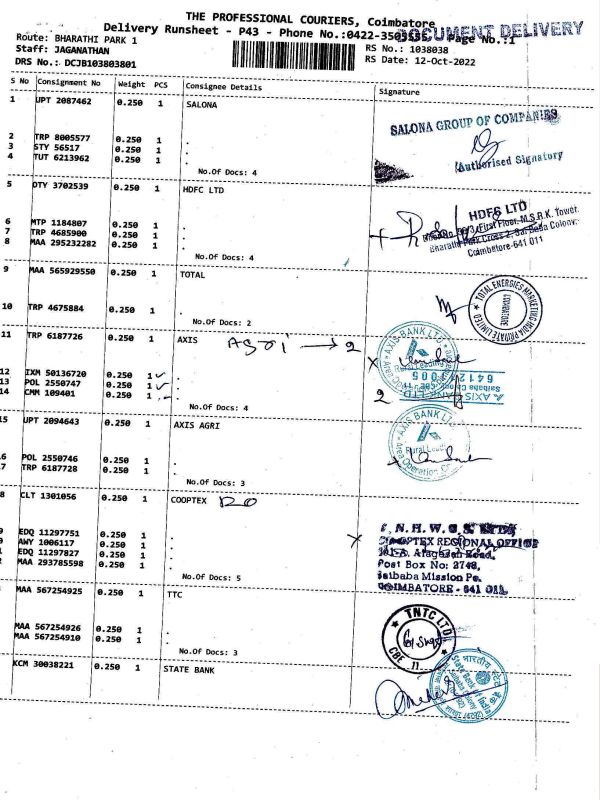 THE PROFESSIONAL COURIERS, Coimbatore
Delivery Runsheet - P43 - Phone No.:0422- Page No.:1
DOCUMENT DELIVERY
Route: BHARATHI PARK 1 RS No.: 1038038
Staff: JAGANATHAN RS Date: 12-Oct-2022
DRS No.: DCJB103803801
S No Consignment No Weight PCS Consignee Details Signature
1 UPT 2087462 0.250 1 SALONA
SALONA GROUP OF COMPANIES
2 TRP 8005577 0.250 1 .
3 STY 56517 0.250 1 .
4 TUT 6213962 0.250 1 .
Authorised Signatory
No.Of Docs: 4
5 DTY 3702539 0.250 1 HDFC LTD
HDFC LTD
First Floor, M.S.R.K. Tower,
6 MTP 1184807 0.250 1 .
Bharathi Park Cross 2, Sai Baba Colony,
7 TRP 4685900 0.250 1 .
Coimbatore-641 011
8 MAA 295232282 0.250 1 .
No.Of Docs: 4
9 MAA 565929550 0.250 1 TOTAL
TOTAL ENERGIES MARKETING INDIA PRIVATE LIMITED
COIMBATORE
10 TRP 4675884 0.250 1 .
No.Of Docs: 2
11 TRP 6187726 0.250 1 AXIS Agri → 2
AXIS BANK LTD
Rural Lending
12 IXM 50136720 0.250 1 .
13 POL 2550747 0.250 1 .
14 CMM 109401 0.250 1 .
2
No.Of Docs: 4
15 UPT 2094643 0.250 1 AXIS AGRI
AXIS BANK LTD
6 POL 2550746 0.250 1 .
7 TRP 6187728 0.250 1 .
No.Of Docs: 3
8 CLT 1301056 0.250 1 COOPTEX RO
9 EDQ 11297751 0.250 1 .
AWY 1006117 0.250 1 .
EDQ 11297827 0.250 1 .
2 MAA 293785598 0.250 1 .
COOPTEX REGIONAL OFFICE
Post Box No: 2748,
Saibaba Mission Po.
COIMBATORE - 641 011.
No.Of Docs: 5
MAA 567254925 0.250 1 TTC
TNTC LTD
CBE 11
MAA 567254926 0.250 1 .
MAA 567254910 0.250 1 .
No.Of Docs: 3
KCM 30038221 0.250 1 STATE BANK
State Bank of India